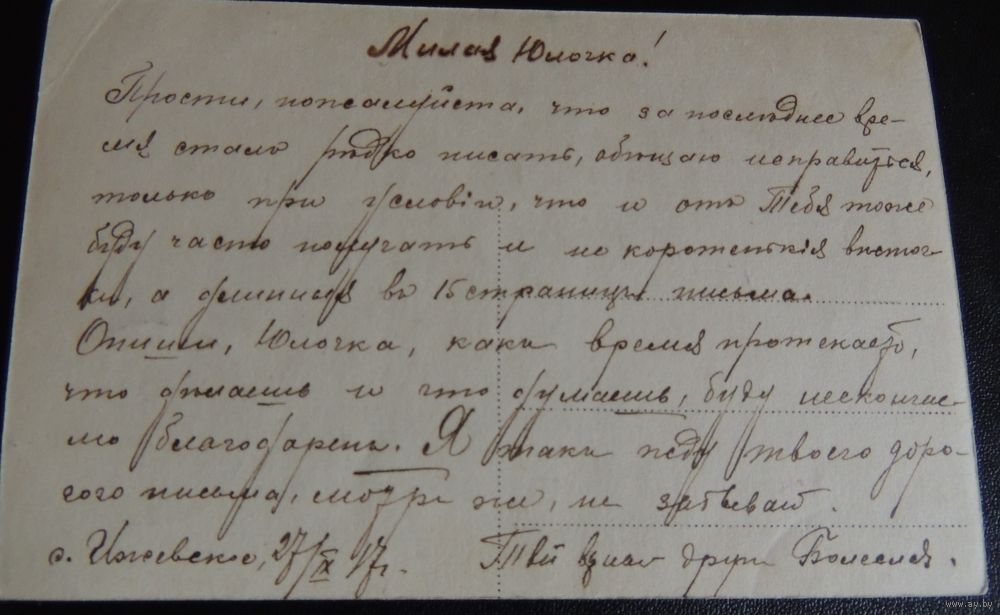 Милая Юлочка!
Прости, пожалуйста, что за последнее вре-
мя сталъ рѣдко писать, обѣщаю исправиться,
только при условіи, что и отъ Тебя тоже
буду часто получать и не коротенькія весточ-
ки, а длинныя въ 15 страницъ письма.
Опиши, Юлочка, какъ время протекаетъ,
что дѣлаешь и что думаешь, буду нескончае-
мо благодаренъ. Я такъ жду твоего доро-
гого письма, смотри же, не забывай.
с. Ижевское, 27/IX 17 г. Твой друг
www.ay.by